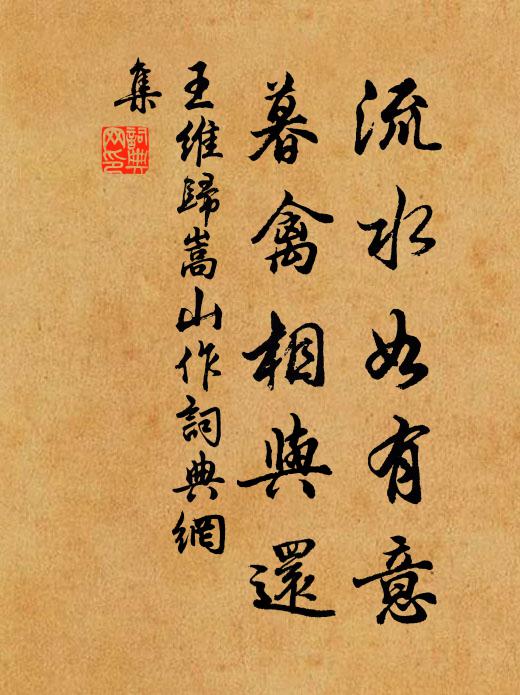 流水如有意
暮禽相與還
王維歸嵩山作詞典網
集
詞典
网印